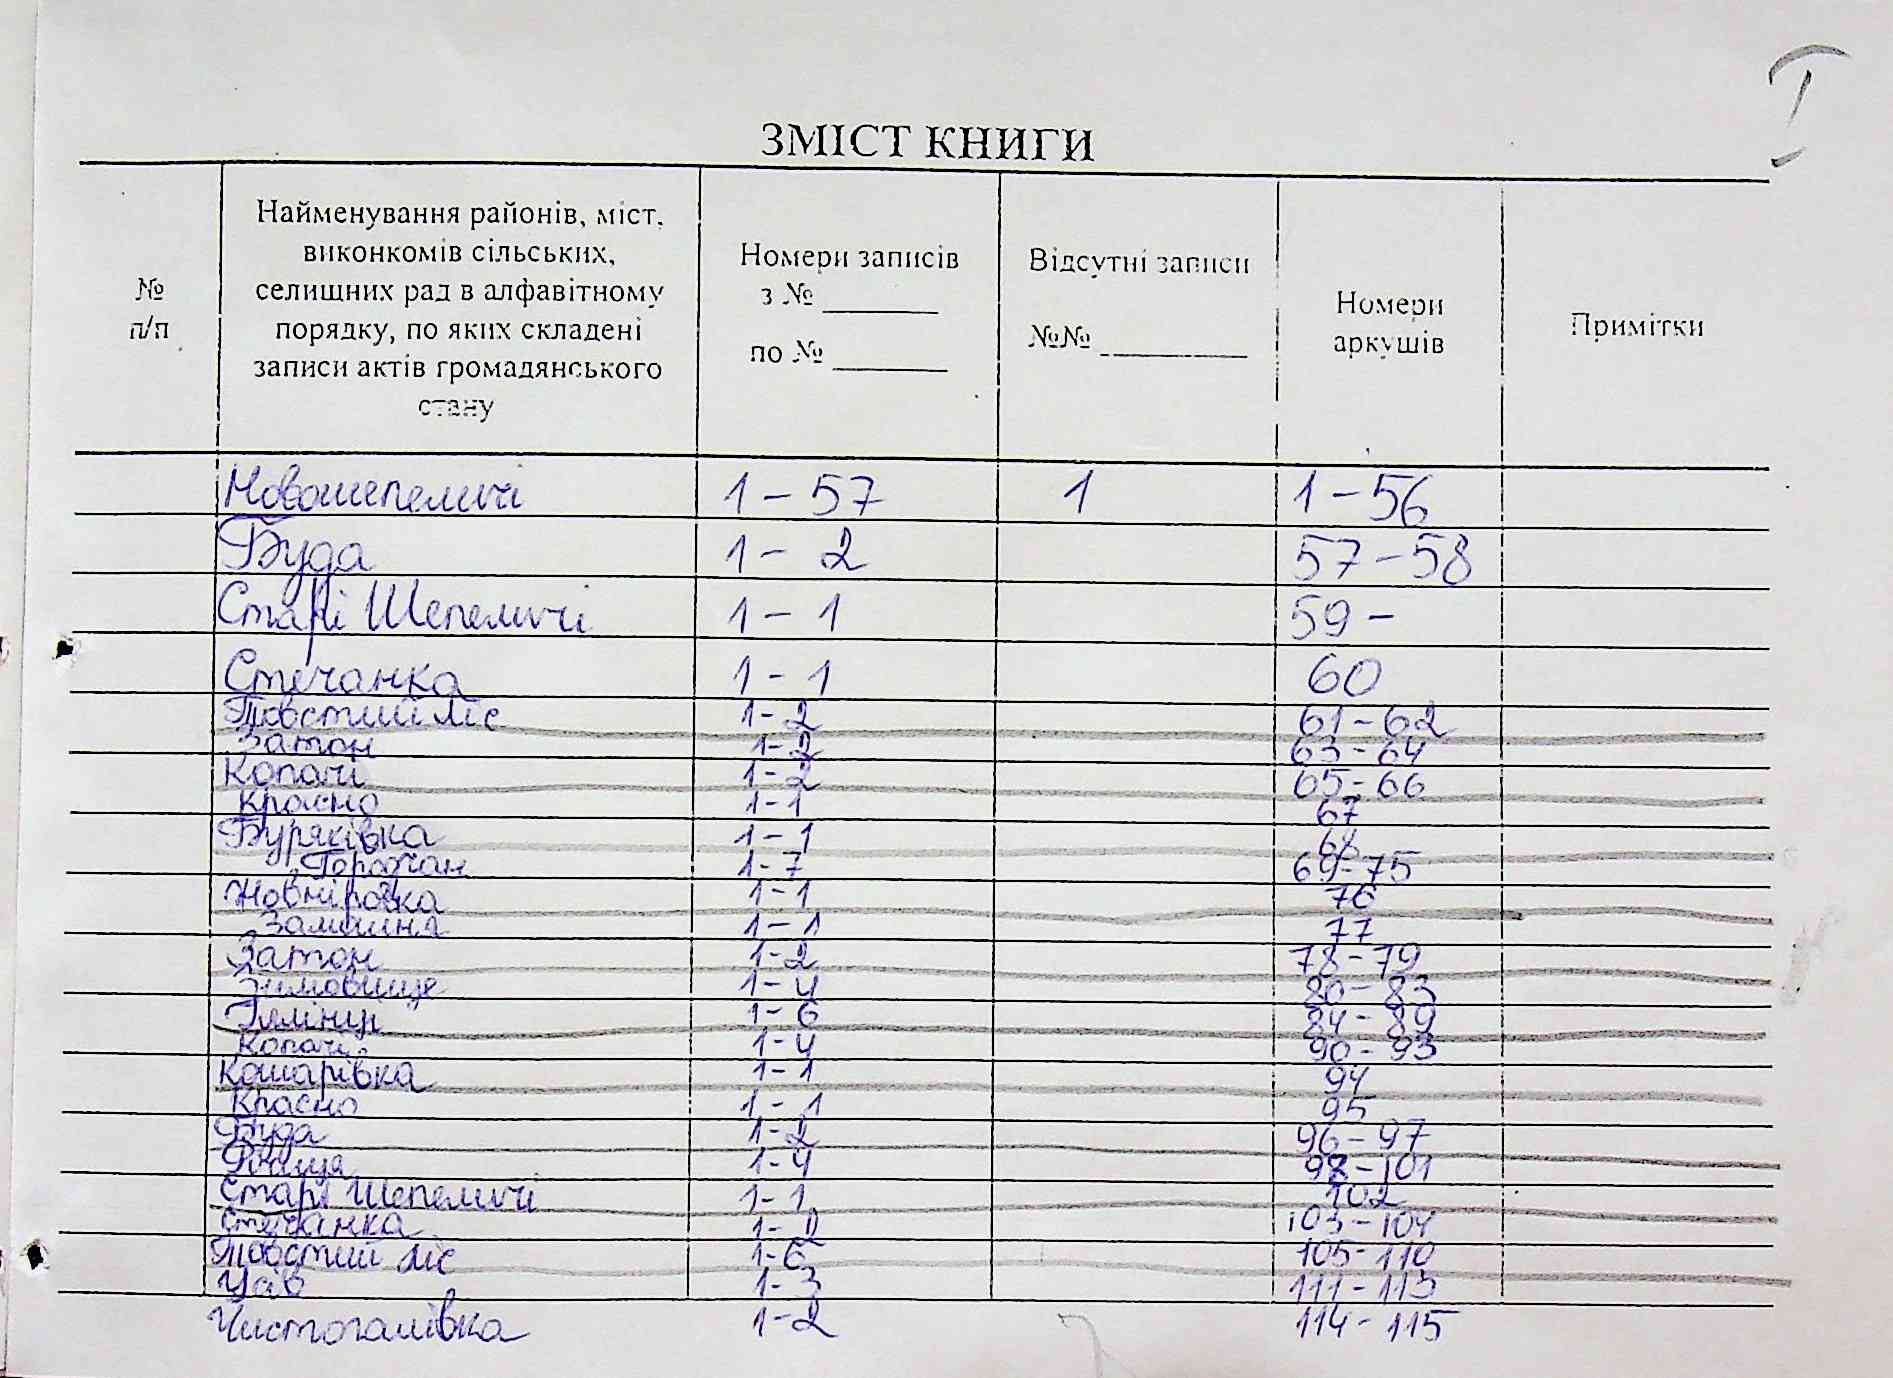 I
ЗМІСТ КНИГИ
№ п/п
Найменування районів, міст, виконкомів сільських, селищних рад в алфавітному порядку, по яких складені записи актів громадянського стану
Номери записів з № ________ по № ________
Відсутні записи №№ ________
Номери аркушів
Примітки
Новошепеличі 1 - 57 1 1 - 56
Буда 1 - 2 57 - 58
Старі Шепеличі 1 - 1 59 -
Стечанка 1 - 1 60
Товстий Ліс 1 - 2 61 - 62
Затон 1 - 2 63 - 64
Копачі 1 - 2 65 - 66
Красно 1 - 1 67
Буряківка 1 - 1 68
Городчан 1 - 7 69 - 75
Жовніровка 1 - 1 76
Замошня 1 - 1 77
Затон 1 - 2 78 - 79
Зимовище 1 - 4 80 - 83
Іллінці 1 - 6 84 - 89
Копачі 1 - 4 90 - 93
Кошарівка 1 - 1 94
Красно 1 - 1 95
Буда 1 - 2 96 - 97
1 - 4 98 - 101
Старі Шепеличі 1 - 1 102
Стечанка 1 - 2 103 - 104
Товстий Ліс 1 - 6 105 - 110
Усів 1 - 3 111 - 113
Чистогалівка 1 - 2 114 - 115